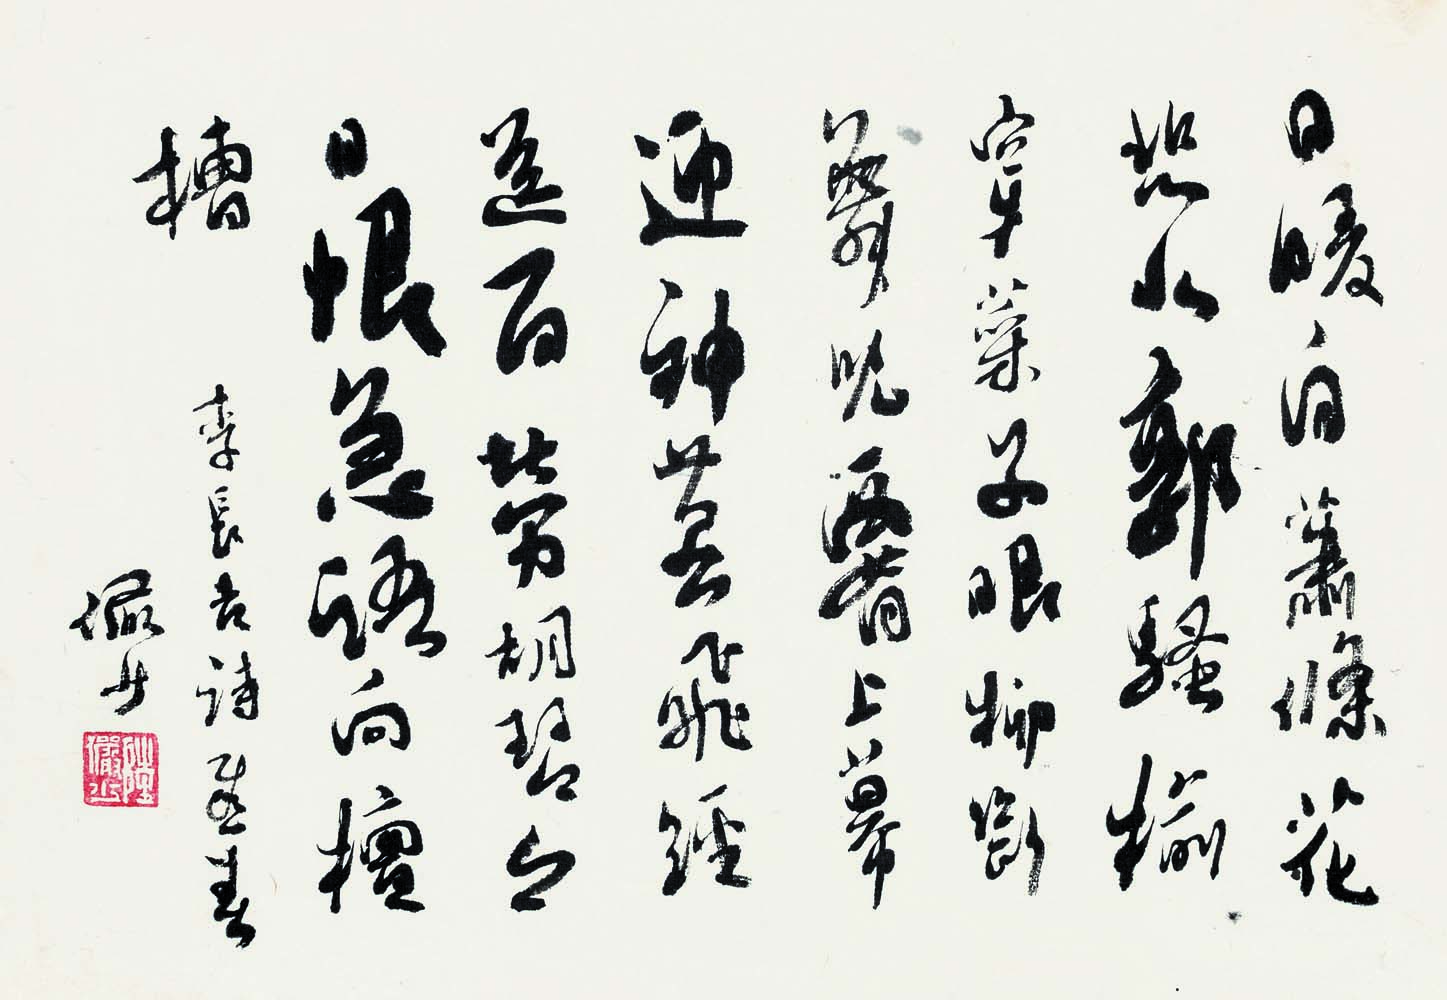 日暖自蕭條花
悲北郭騷榆
穿萊子眼柳斷
舞兒腰上幕
迎神燕飛絲
送百勞胡琴今
日恨急語向檀
槽
李長吉詩感春
儼少
陸儼少